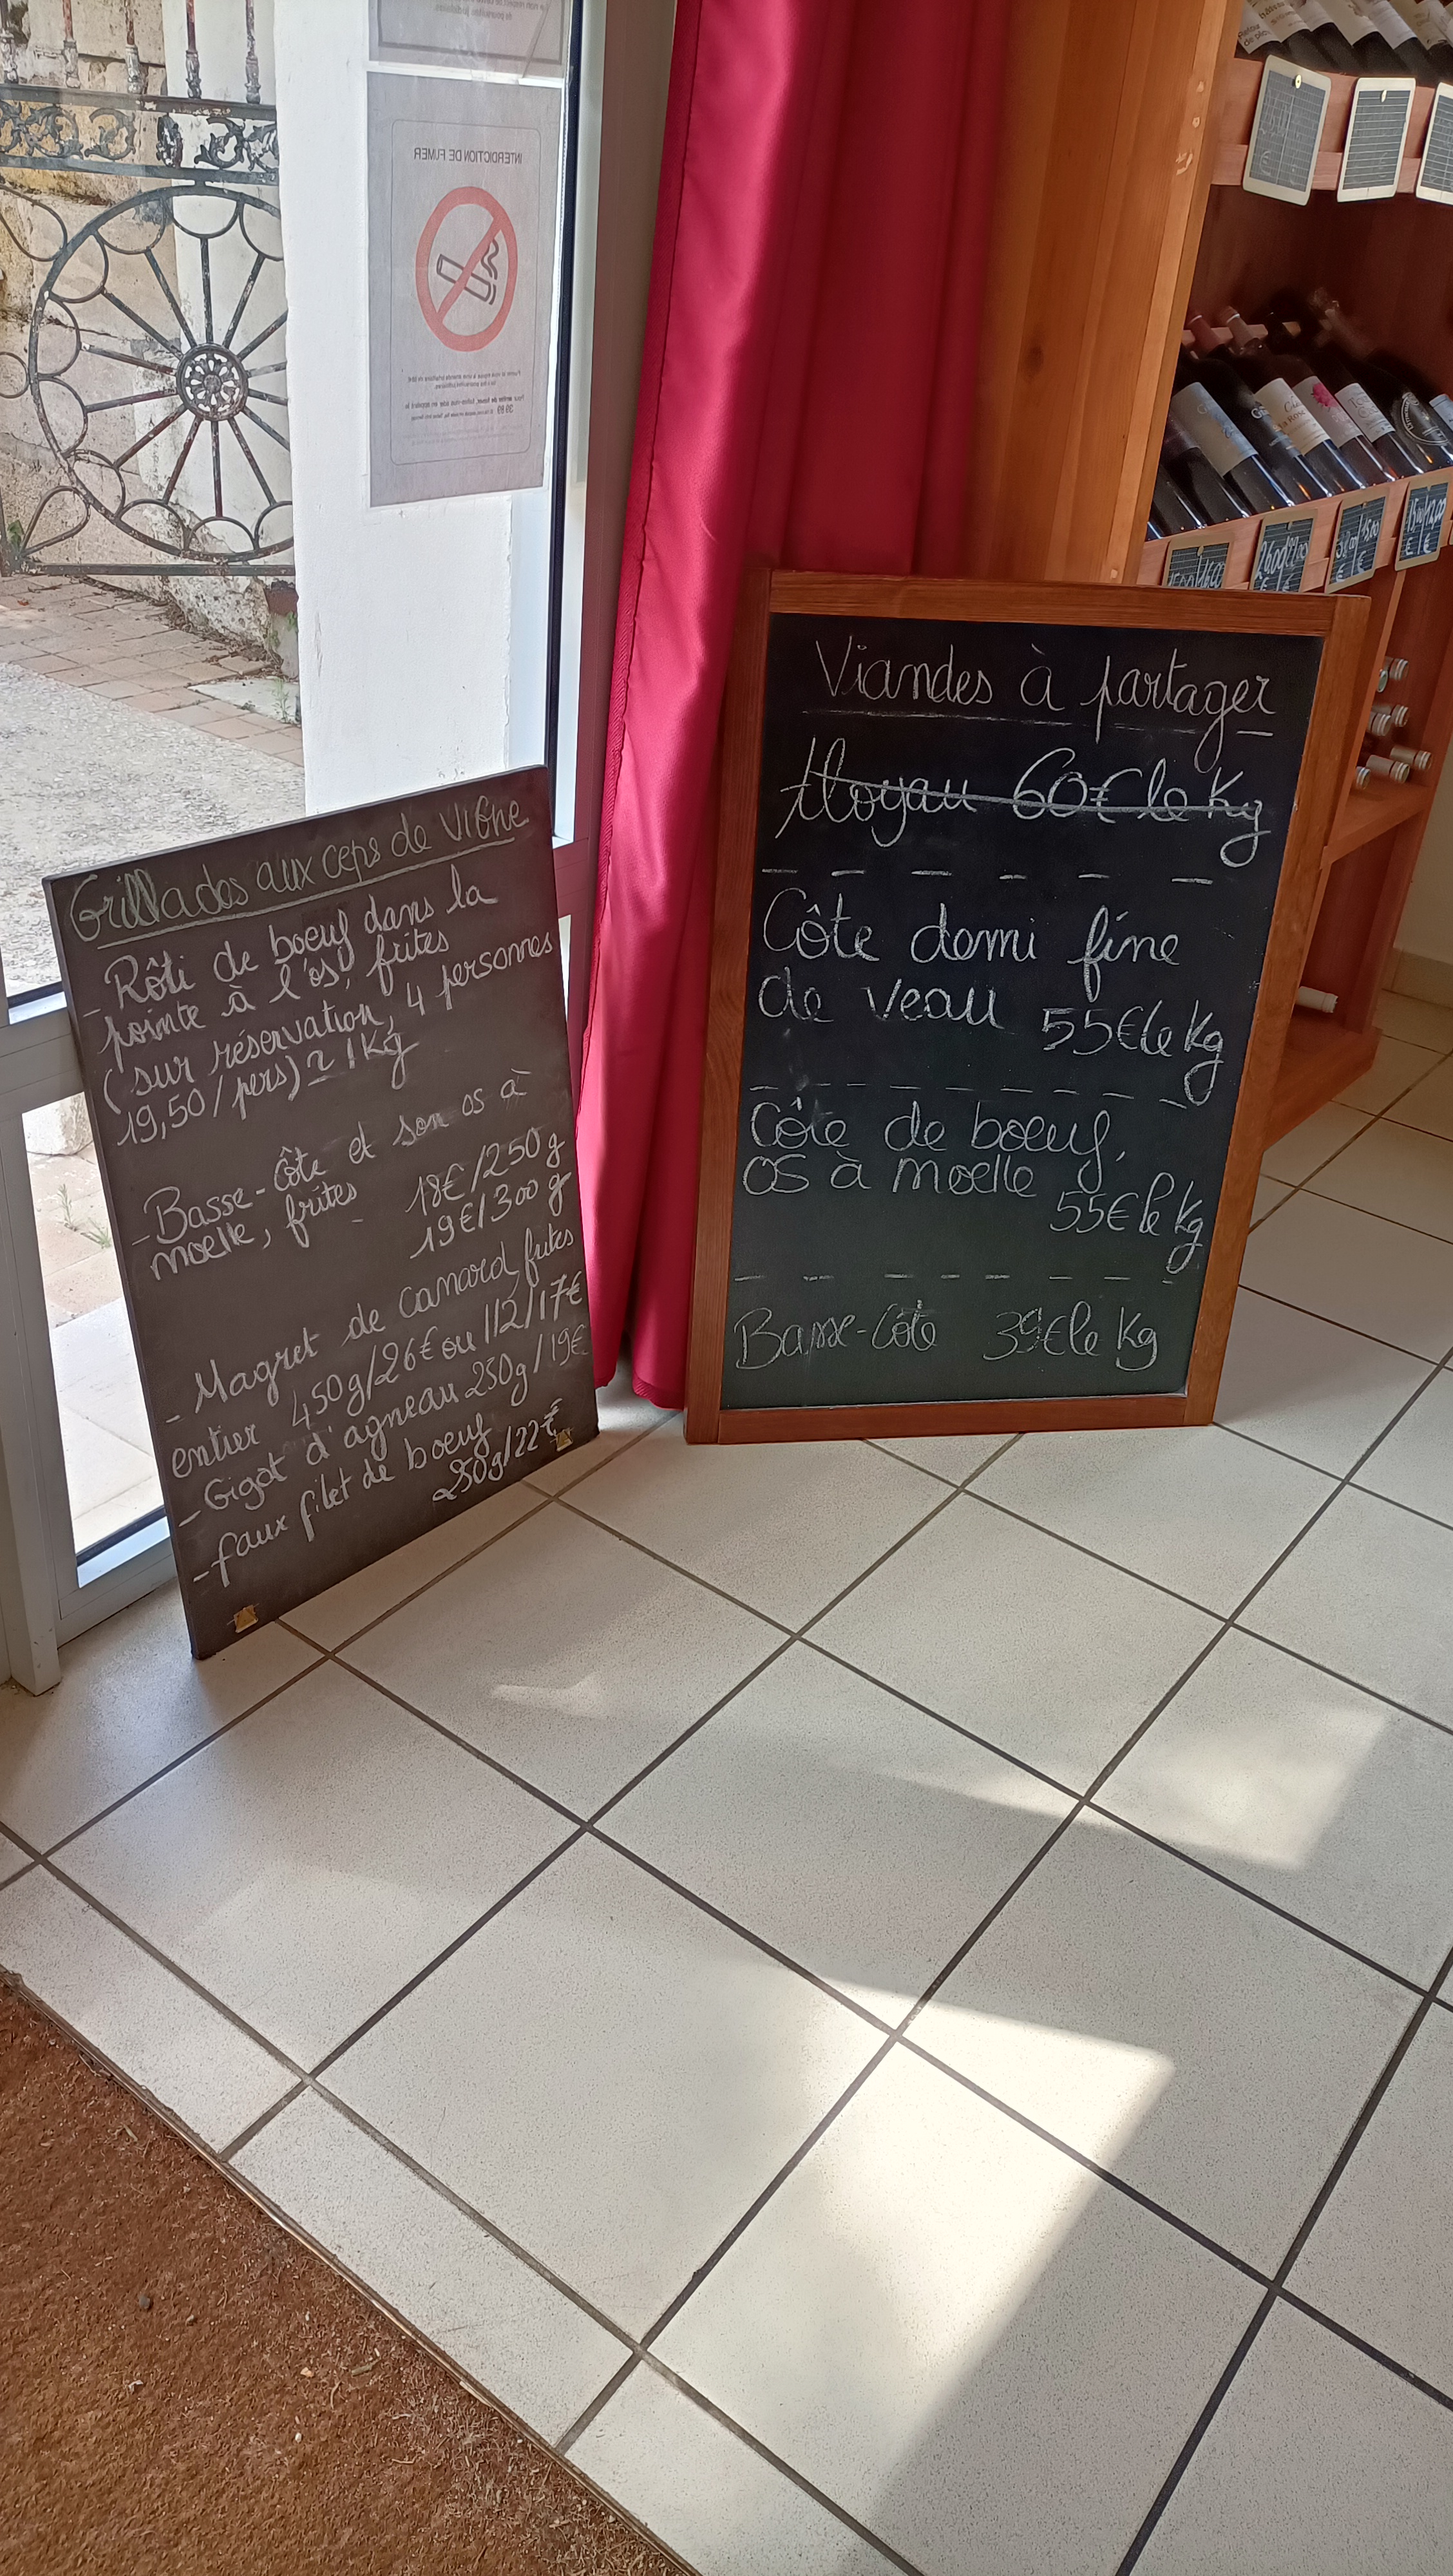 INTERDICTION DE FUMER
Grillades aux ceps de Vigne
- Rôti de boeuf dans la
pointe à l'os, frites
(sur réservation, 4 personnes
19,50/pers) ~ 1 Kg
- Basse-Côte et son os à
moelle, frites 18€/250 g
19€/300 g
- Magret de canard, frites
entier 450g/26€ ou 1/2/17€
- Gigot d'agneau 250g/19€
- faux filet de boeuf
250g/22€
Viandes à partager
Aloyau 60€ le Kg
Côte demi fine
de veau 55€ le Kg
Côte de boeuf,
os à moelle
55€ le Kg
Basse-Côte 39€ le Kg